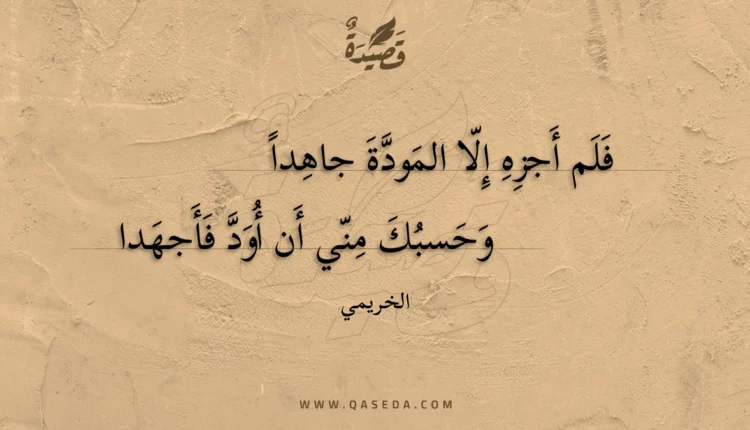 قَصِيْدَةٌ
فَلَم أَجزِهِ إِلّا المَودَّةَ جاهِداً
وَحَسبُكَ مِنّي أَن أُوَدَّ فَأَجهَدا
الخريمي
WWW.QASEDA.COM